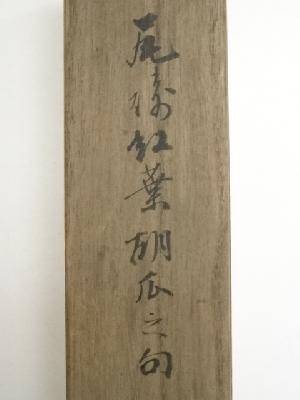 尾崎紅葉胡瓜之句